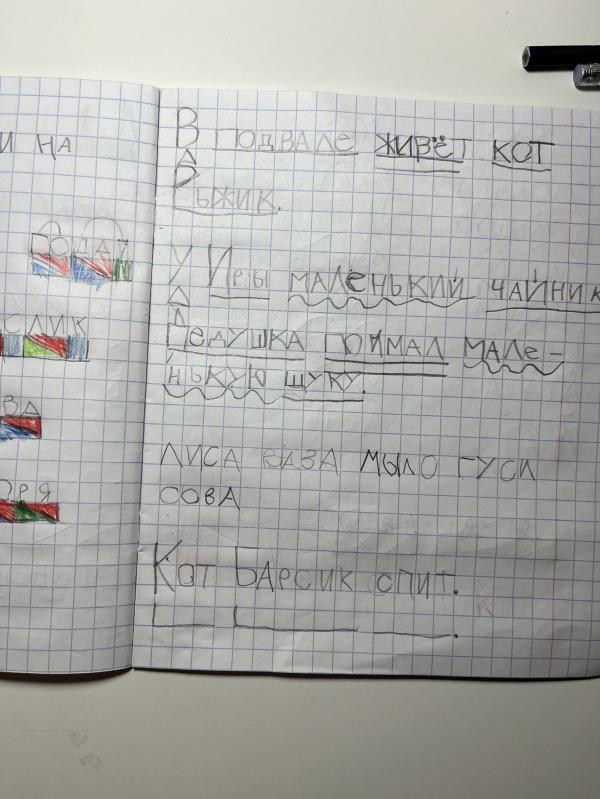 И НА
В ПОДВАЛЕ ЖИВЁТ КОТ
РЫЖИК.
У ИРЫ МАЛЕНЬКИЙ ЧАЙНИК
ДЕДУШКА ПОЙМАЛ МАЛЕ-
НЬКУЮ ЩУКУ.
ЛИСА ВАЗА МЫЛО ГУСИ
СОВА
КОТ БАРСИК СПИТ.